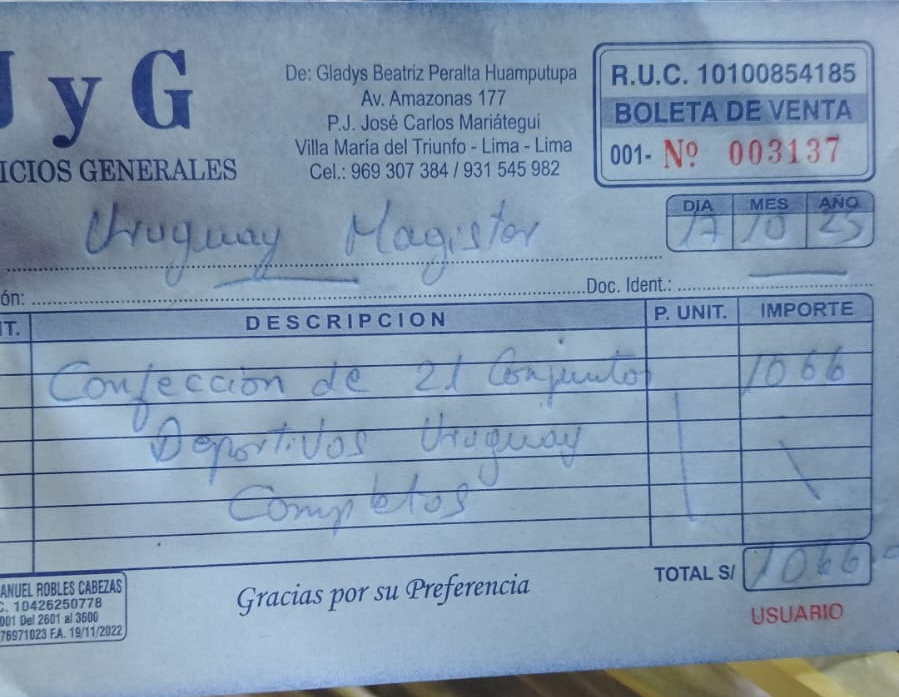 J y G
ICIOS GENERALES
De: Gladys Beatriz Peralta Huamputupa
Av. Amazonas 177
P.J. José Carlos Mariátegui
Villa María del Triunfo - Lima - Lima
Cel.: 969 307 384 / 931 545 982
R.U.C. 10100854185
BOLETA DE VENTA
001- Nº 003137
DIA MES AÑO
17 10 25
Uruguay Magister
ón: Doc. Ident.:
T. DESCRIPCION P. UNIT. IMPORTE
Confeccion de 21 Conjuntos 1066
Deportivos Uruguay
Completos
TOTAL S/ 1066.0
ANUEL ROBLES CABEZAS
C. 10426250778
001 Del 2601 al 3600
76971023 F.A. 19/11/2022
Gracias por su Preferencia
USUARIO